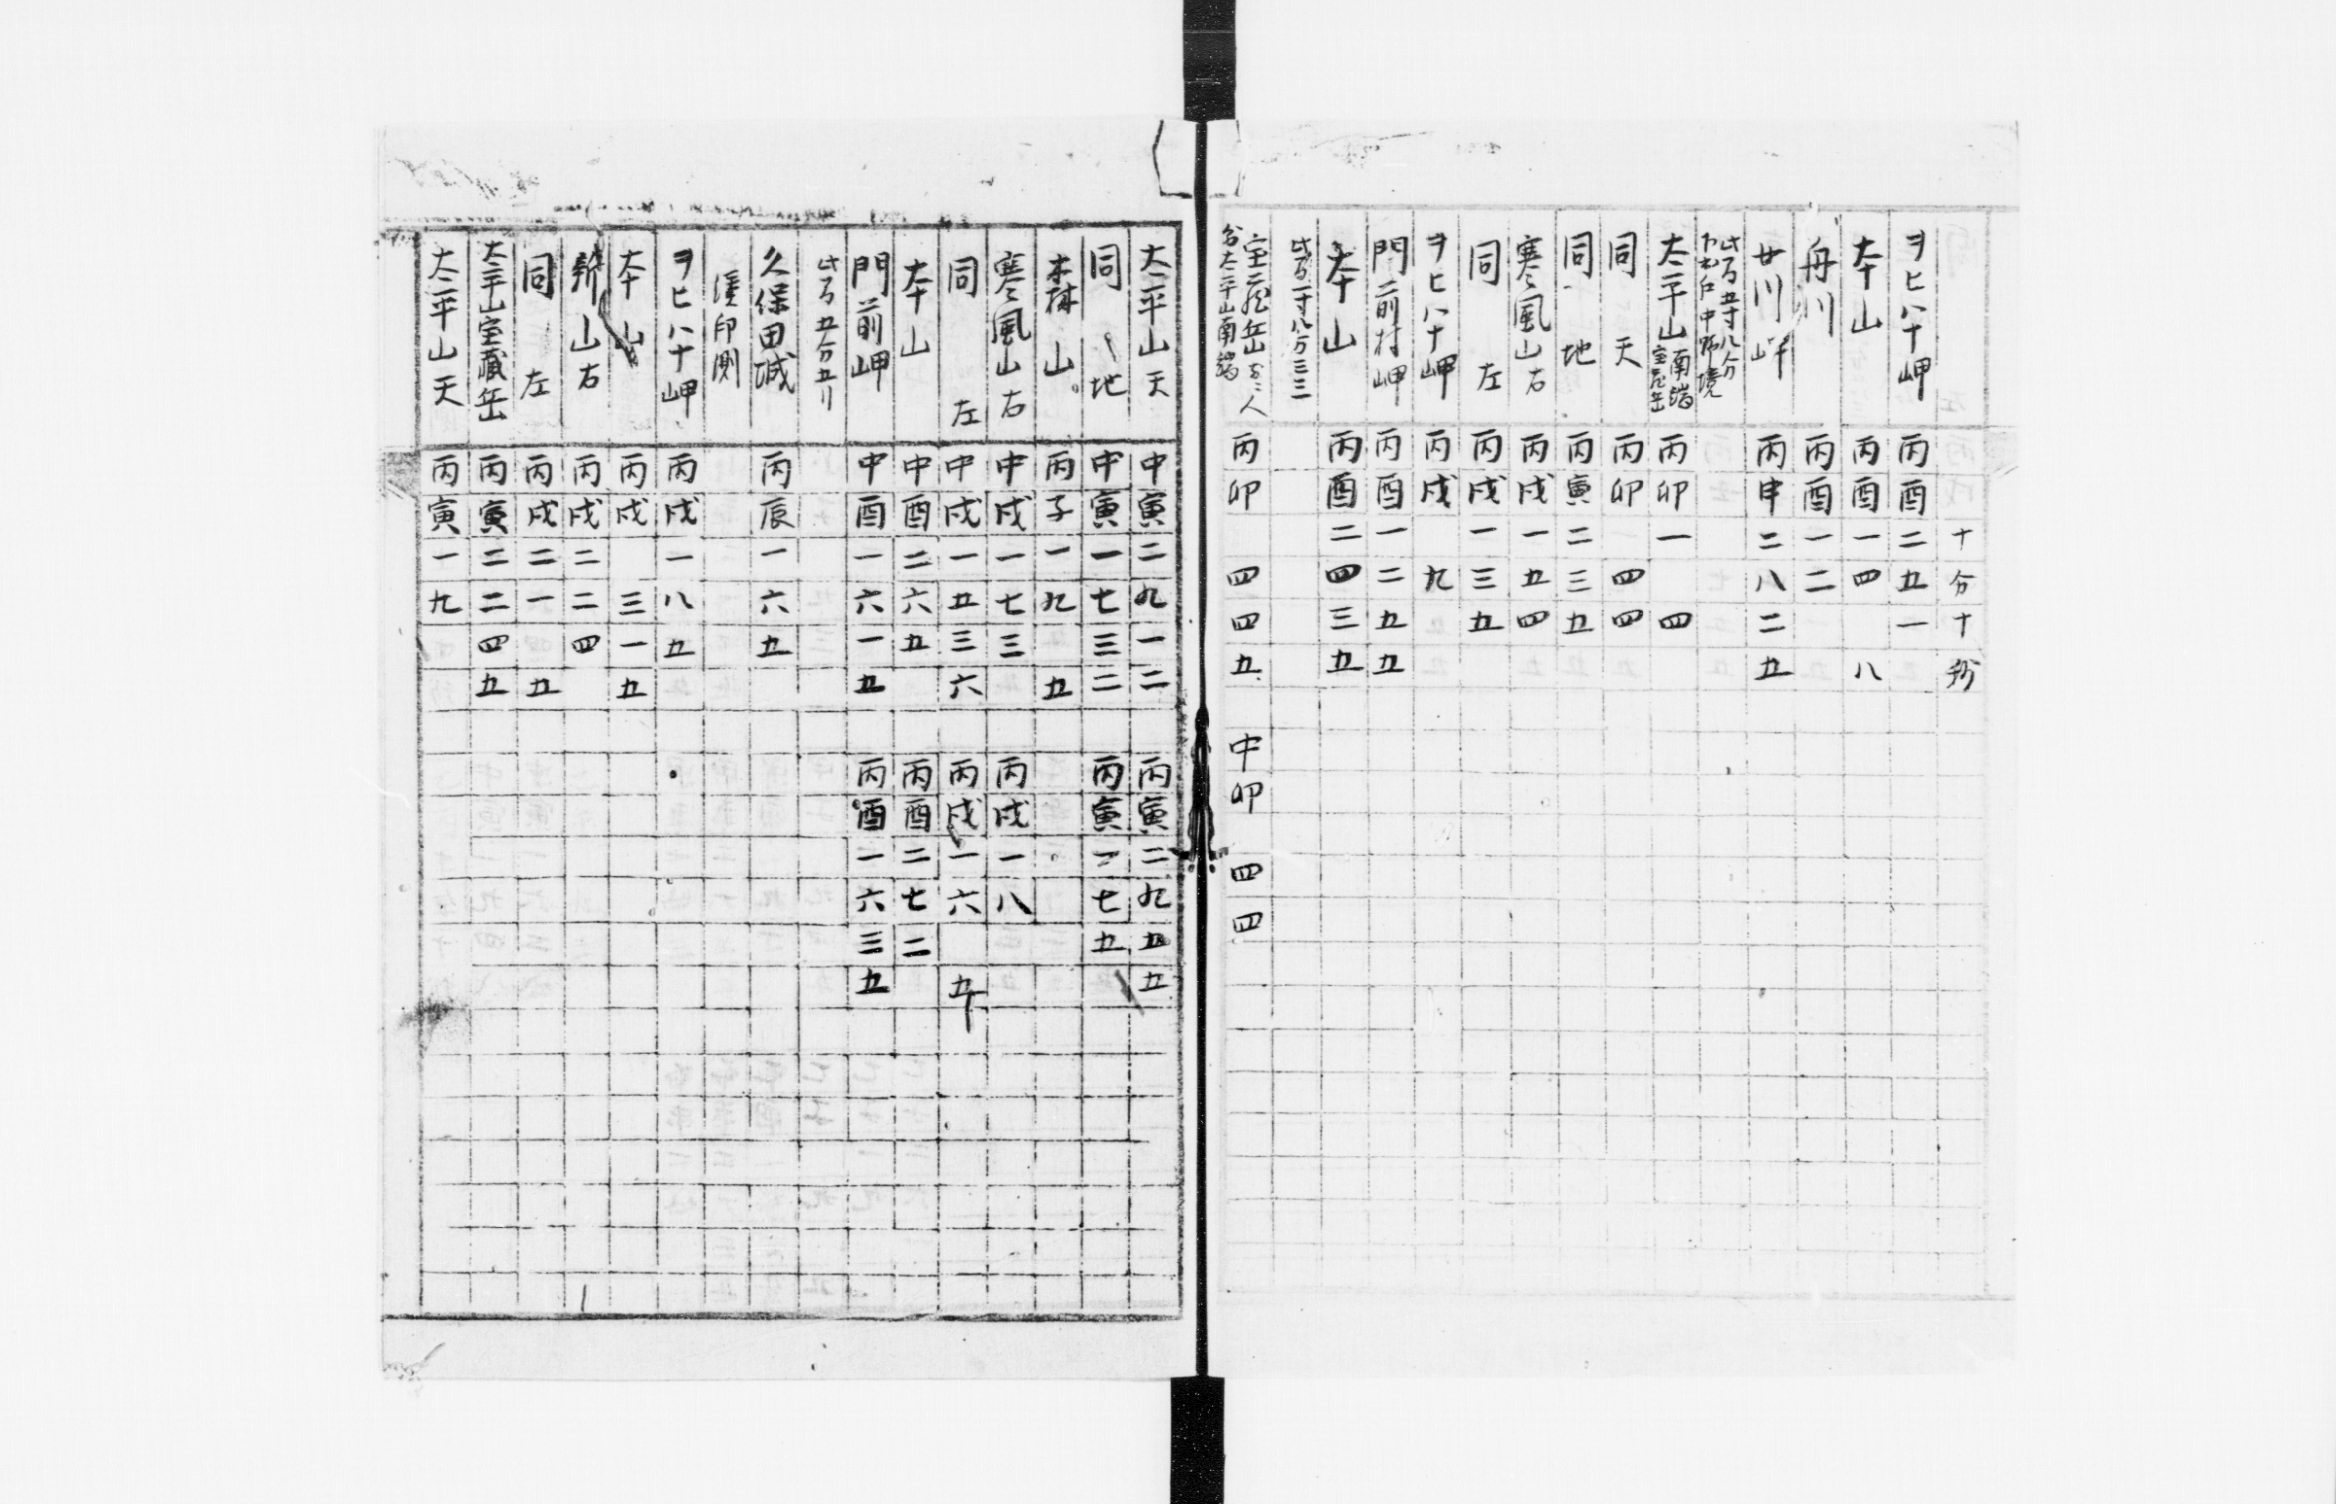 十分十秒
ヲヒハナ岬 丙酉二五一
本山 丙酉一四 八
舟川 丙酉一二
廿川岬 丙申二八二五
此方五寸八分
大平山南端 室蔵岳 丙卯一 四
同 天 丙卯 四四
同 地 丙寅二三五
寒風山右 丙戌一五四
同 左 丙戌一三五
ヲヒハナ岬 丙戌 九
門前村岬 丙酉一二五五
本山 丙酉二四三五
此方一寸八分三三
室蔵岳 大平山南端 丙卯 四四五 中卯 四四
大平山天 中寅二九一二 丙寅二九五五
同 地 中寅一七三二 丙寅一七五
森山 丙子一九 五
寒風山右 中戌一七三 丙戌一八
同 左 中戌一五三六 丙戌一六 五
本山 中酉二六五 丙酉二七二
門前岬 中酉一六一五 丙酉一六三五
此方五分五リ
久保田城 丙辰一六五
印測
ヲヒハナ岬 丙戌一八五
本山 丙戌 三一五
山右 丙戌二二四
同 左 丙戌二一 五
大平山室蔵岳 丙寅二二四五
大平山天 丙寅一九